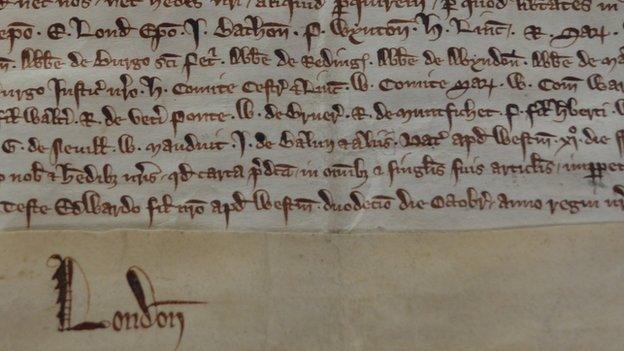 nec nos nec heredes nri aliquid perquirem per quod libtates in
epo. E. Lond Epo. J. Bathon. P. Wynton. H. Linc. R. Sarr.
n. Abbe de Burgo sci Petr. Abbe de Reding. Abbe de Abyndon. Abbe de ma
urgo Justic nro. H. Comite Cestr & Linc. W. Comite Warr. W. Com War
fil Walti. R. de veti ponte. W. de Bruer. R. de muntfichet. P. fil hberti.
G. de Sevill. W. mauduit. J. de Balun & aliis. Dat apd Westm. xio. die f
nob & hedibz nris. qd carta pdca in omibz & singlis suis articlis. inppet
Teste Edwardo fil nro apd Westm. duodecio die Octobr. anno regni nr
London